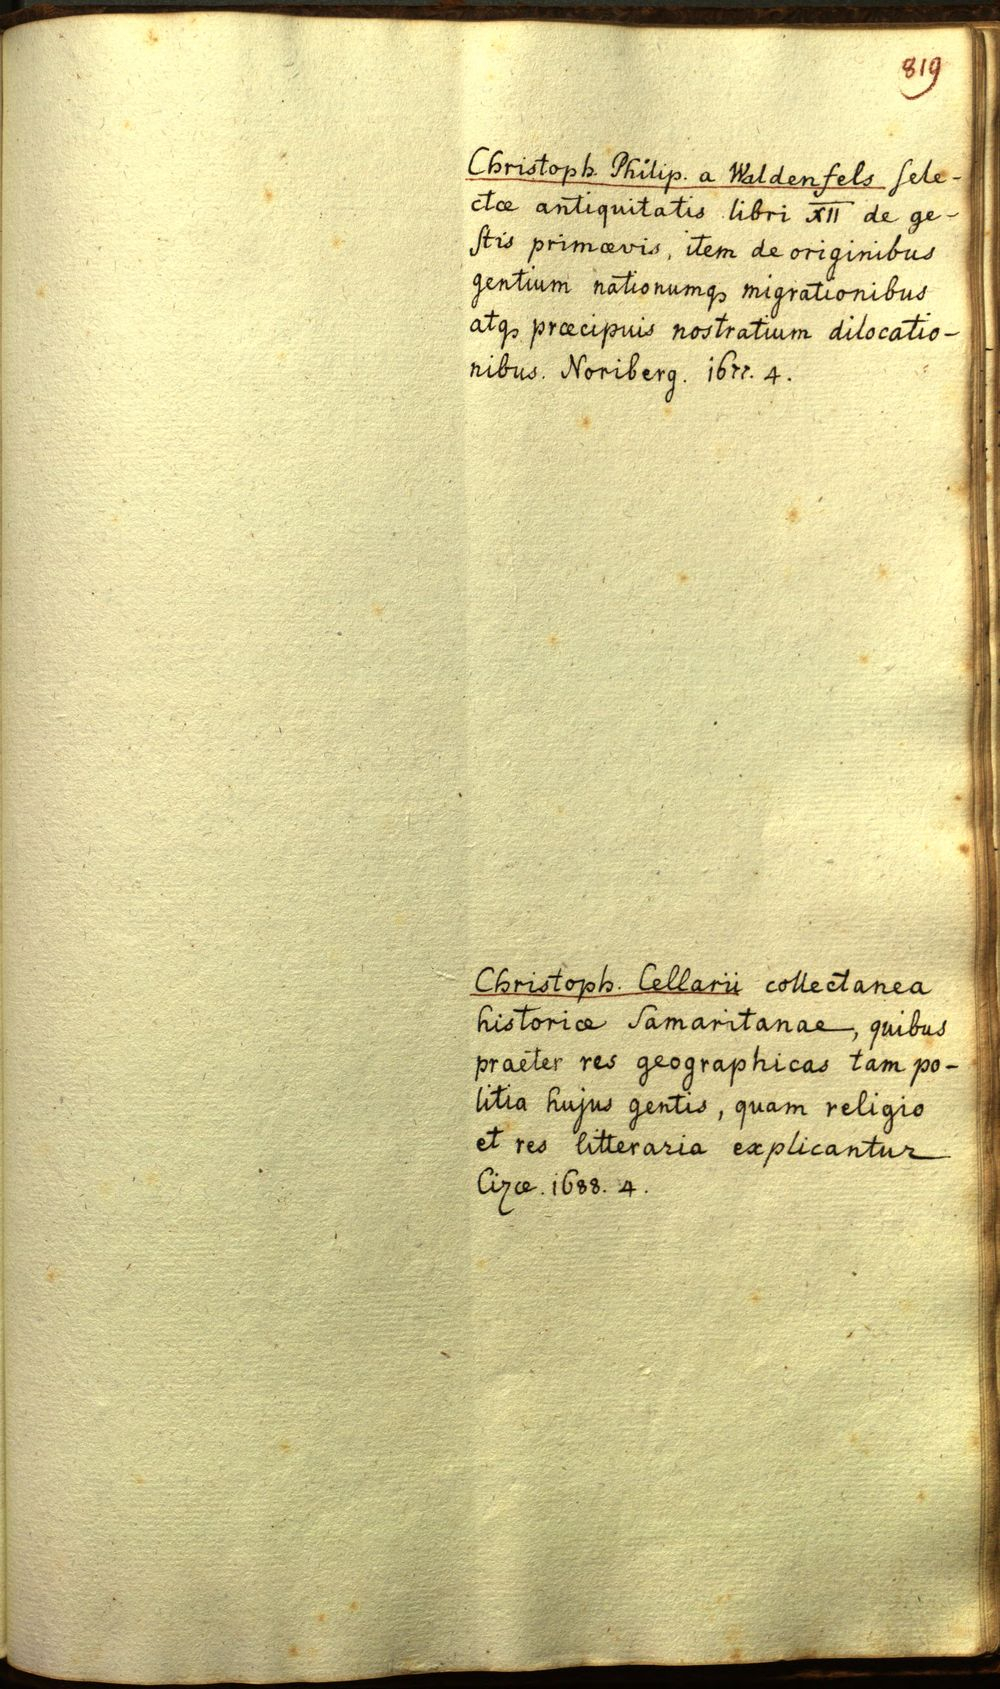 819
Christoph. Philip. a Waldenfels sele-
ctæ antiquitatis libri XII de ge-
stis primævis, item de originibus
gentium nationumq₃ migrationibus
atq₃ præcipuis nostratium dilocatio-
nibus. Noriberg. 1677. 4.
Christoph. Cellarii collectanea
historiæ Samaritanae, quibus
praeter res geographicas tam po-
litia hujus gentis, quam religio
et res litteraria explicantur
Cizæ. 1688. 4.